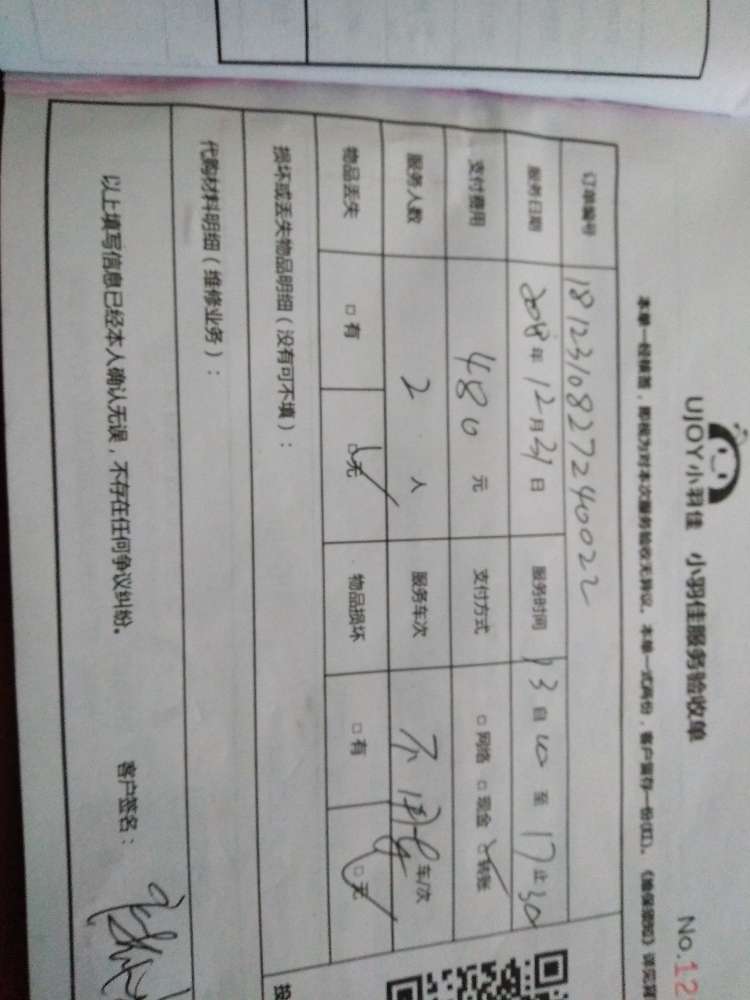 UJOY小羽佳 小羽佳服务验收单 No.12
本单一经核签，即视为对本次服务验收无异议。本单一式两份，客户留存一份(红)。《维保须知》详见背
订单编号 1812310827240022
服务日期 2018年12月31日 服务时间 13自00至17止30
支付费用 480元 支付方式 □网络 □现金 □转账
服务人数 2人 服务车次 不用车 车/次
物品丢失 □有 □无 物品损坏 □有 □无
损坏或丢失物品明细（没有可不填）：
代购材料明细（维修业务）：
以上填写信息已经本人确认无误，不存在任何争议纠纷。 客户签名：